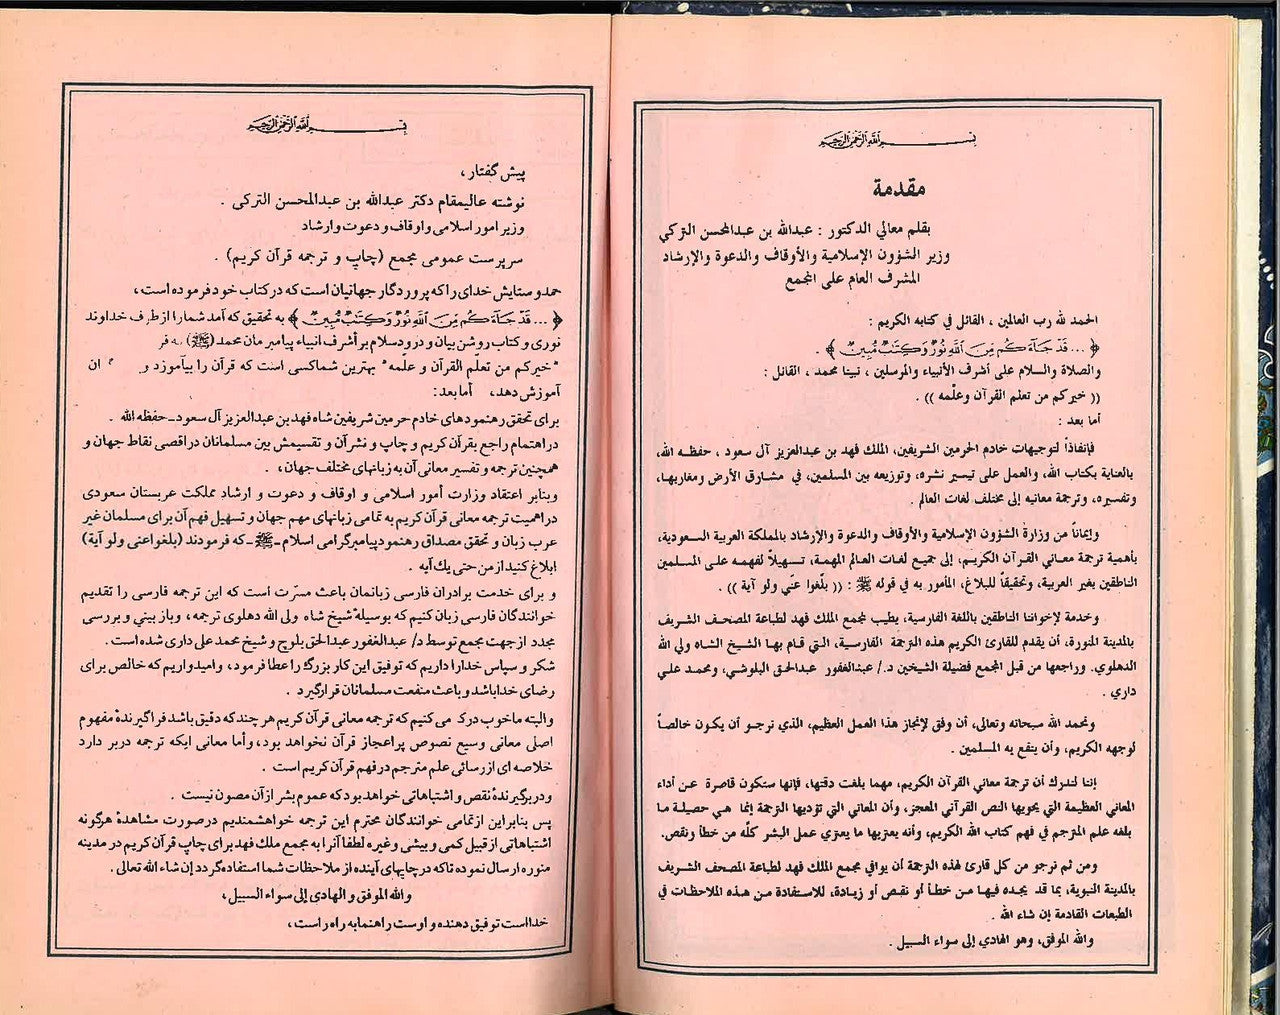 بسم الله الرحمن الرحيم
مقدمة
بقلم معالي الدكتور : عبدالله بن عبدالمحسن التركي
وزير الشؤون الإسلامية والأوقاف والدعوة والإرشاد
المشرف العام على المجمع
الحمد لله رب العالمين ، القائل في كتابه الكريم :
﴿ ... قَدْ جَآءَكُم مِّنَ ٱللَّهِ نُورٌ وَكِتَٰبٌ مُّبِينٌ ﴾ .
والصلاة والسلام على أشرف الأنبياء والمرسلين ، نبينا محمد ، القائل :
(( خيركم من تعلم القرآن وعلّمه )) .
أما بعد :
فإنفاذاً لتوجيهات خادم الحرمين الشريفين، الملك فهد بن عبدالعزيز آل سعود ، حفظه الله،
بالعناية بكتاب الله، والعمل على تيسير نشره، وتوزيعه بين المسلمين، في مشارق الأرض ومغاربها،
وتفسيره، وترجمة معانيه إلى مختلف لغات العالم .
وإيماناً من وزارة الشؤون الإسلامية والأوقاف والدعوة والإرشاد بالمملكة العربية السعودية،
بأهمية ترجمة معاني القرآن الكريم، إلى جميع لغات العالم المهمة، تسهيلاً لفهمه على المسلمين
الناطقين بغير العربية، وتحقيقاً للبلاغ، المأمور به في قوله ﷺ : (( بلّغوا عنّي ولو آية )) .
وخدمة لإخواننا الناطقين باللغة الفارسية، يطيب لمجمع الملك فهد لطباعة المصحف الشريف
بالمدينة المنورة، أن يقدم للقارئ الكريم هذه الترجمة الفارسية، التي قام بها الشيخ الشاه ولي الله
الدهلوي. وراجعها من قبل المجمع فضيلة الشيخين د./ عبدالغفور عبدالحق البلوشي، ومحمد علي
داري .
ونحمد الله سبحانه وتعالى، أن وفق لإنجاز هذا العمل العظيم، الذي نرجو أن يكون خالصاً
لوجهه الكريم، وأن ينفع به المسلمين .
إننا لندرك أن ترجمة معاني القرآن الكريم، مهما بلغت دقتها، فإنها ستكون قاصرة عن أداء
المعاني العظيمة التي يحويها النص القرآني المعجز، وأن المعاني التي تؤديها الترجمة إنما هي حصيلة ما
بلغه علم المترجم في فهم كتاب الله الكريم، وأنه يعتريها ما يعتري عمل البشر كلّه من خطأ ونقص.
ومن ثم نرجو من كل قارئ لهذه الترجمة أن يوافي مجمع الملك فهد لطباعة المصحف الشريف
بالمدينة النبوية، بما قد يجده فيها من خطأ أو نقص أو زيادة، للاستفادة من هذه الملاحظات في
الطبعات القادمة إن شاء الله .
والله الموفق، وهو الهادي إلى سواء السبيل .
بسم الله الرحمن الرحيم
پیش گفتار ،
نوشته عالیمقام دکتر عبدالله بن عبدالمحسن التركي .
وزیر امور اسلامی و اوقاف و دعوت و ارشاد
سرپرست عمومی مجمع (چاپ و ترجمه قرآن کریم) .
حمد و ستایش خدای را که پروردگار جهانیان است که در کتاب خود فرموده است ،
﴿ ... قَدْ جَآءَكُم مِّنَ ٱللَّهِ نُورٌ وَكِتَٰبٌ مُّبِينٌ ﴾ به تحقیق که آمد شما را از طرف خداوند
نوری و کتاب روشن بیان و درود سلام بر أشرف انبیاء پیامبرمان محمد (ﷺ)
"خيركم من تعلّم القرآن و علّمه" بهترین شما کسی است که قرآن را بیآموزد و
آموزش دهد، أما بعد :
برای تحقق رهنمودهای خادم حرمین شریفین شاه فهد بن عبدالعزیز آل سعود ــ حفظه الله .
در اهتمام راجع بقرآن کریم و چاپ و نشر آن و تقسیمش بین مسلمانان در اقصی نقاط جهان و
همچنین ترجمه و تفسیر معانی آن به زبانهای مختلف جهان ،
وبنابر اعتقاد وزارت أمور اسلامی و اوقاف و دعوت و ارشاد مملکت عربستان سعودی
در اهمیت ترجمه معانی قرآن کریم به تمامی زبانهای مهم جهان و تسهیل فهم آن برای مسلمان غیر
عرب زبان و تحقق مصداق رهنمود پیامبر گرامی اسلام ــ ﷺ ــ که فرمودند (بلغوا عني ولو آية)
ابلاغ کنید از من حتی یك آیه .
و برای خدمت برادران فارسی زبانمان باعث مسرّت است که این ترجمه فارسی را تقدیم
خوانندگان فارسی زبان کنیم که بوسیله شیخ شاه ولی الله دهلوی ترجمه ، وبازبینی و بررسی
مجدد از جهت مجمع توسط د/ عبدالغفور عبدالحق بلوچ و شیخ محمد علی داری شده است .
شکر و سپاس خدا را داریم که توفیق این کار بزرگ را عطا فرمود ، و امیدواریم که خالص برای
رضای خدا باشد و باعث منفعت مسلمانان قرار گیرد .
والبته ما خوب درک می کنیم که ترجمه معانی قرآن کریم هر چند که دقیق باشد فراگیرندهٔ مفهوم
اصلی معانی وسیع نصوص پر اعجاز قرآن نخواهد بود ، وأما معانی ایکه ترجمه در بر دارد
خلاصه ای از رسائی علم مترجم در فهم قرآن کریم است .
و در برگیرندهٔ نقص و اشتباهاتی خواهد بود که عموم بشر از آن مصون نیست .
پس بنابر این از تمامی خوانندگان محترم این ترجمه خواهشمندیم در صورت مشاهدهٔ هرگونه
اشتباهاتی از قبیل کمی و بیشی و غیره لطفا آنرا به مجمع ملك فهد برای چاپ قرآن کریم در مدینه
منوره ارسال نموده تا که در چاپهای آینده از ملاحظات شما استفاده گردد إن شاء الله تعالی .
والله الموفق و الهادي إلى سواء السبيل ،
خدا است توفیق دهنده و اوست راهنما به راه راست ،